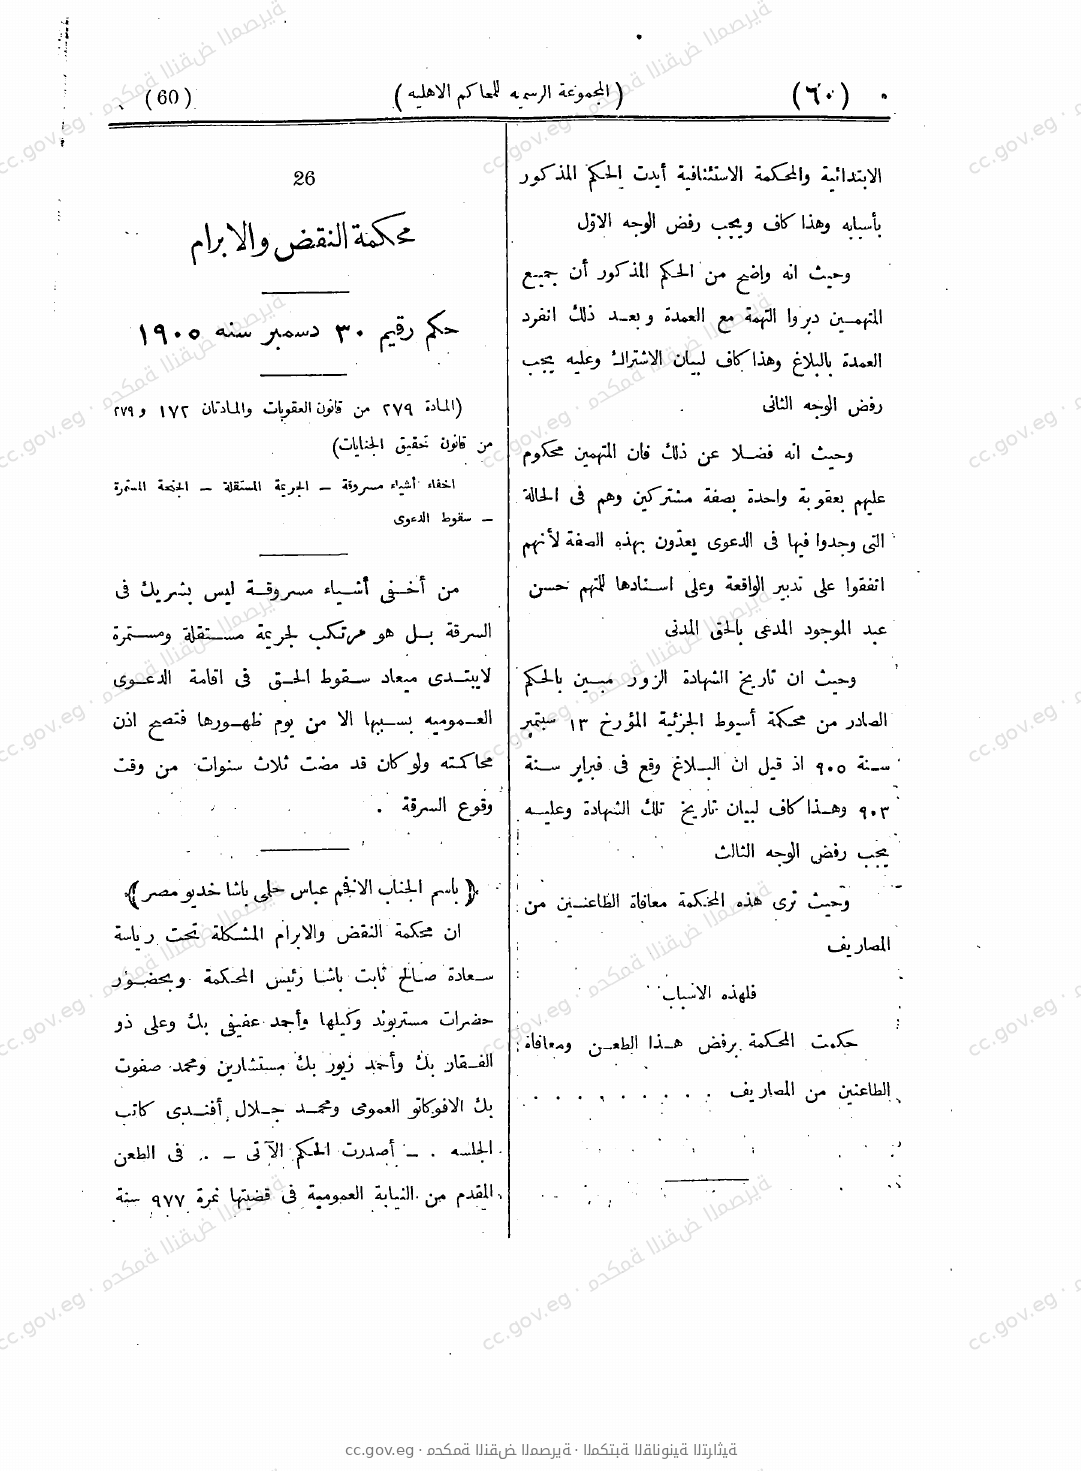 (٦٠) (المجموعة الرسميه للمحاكم الاهليه) (60)
الابتدائية والمحكمة الاستئنافية أيدت الحكم المذكور
بأسبابه وهذا كاف ويجب رفض الوجه الاول
وحيث انه واضح من الحكم المذكور أن جميع
المتهمين دبروا التهمة مع العمدة وبعد ذلك انفرد
العمدة بالبلاغ وهذا كاف لبيان الاشتراك وعليه يجب
رفض الوجه الثانى
وحيث انه فضلا عن ذلك فان المتهمين محكوم
عليهم بعقوبة واحدة بصفة مشتركين وهم فى الحالة
التى وجدوا فيها فى الدعوى يعدّون بهذه الصفة لأنهم
اتفقوا على تدبير الواقعة وعلى اسنادها للمتهم حسن
عبد الموجود المدعى بالحق المدنى
وحيث ان تاريخ الشهادة الزور مبين بالحكم
الصادر من محكمة أسيوط الجزئية المؤرخ ١٣ سبتمبر
سنة ٩٠٥ اذ قيل ان البلاغ وقع فى فبراير سنة
٩٠٣ وهذا كاف لبيان تاريخ تلك الشهادة وعليه
يجب رفض الوجه الثالث
وحيث ترى هذه المحكمة معافاة الطاعنين من
المصاريف
فلهذه الاسباب
حكمت المحكمة برفض هذا الطعن ومعافاة
الطاعنين من المصاريف . . . . . . . . .
26
محكمة النقض والابرام
حكم رقيم ٣٠ دسمبر سنه ١٩٠٥
(المادة ٢٧٩ من قانون العقوبات والمادتان ١٧٢ و٢٧٩
من قانون تحقيق الجنايات)
اخفاء أشياء مسروقة – الجريمة المستقلة – الجنحة المستمرة
– سقوط الدعوى
من أخفى أشياء مسروقة ليس بشريك فى
السرقة بل هو مرتكب لجريمة مستقلة ومستمرة
لايبتدى ميعاد سقوط الحق فى اقامة الدعوى
العموميه بسببها الا من يوم ظهورها فتصح اذن
محاكمته ولو كان قد مضت ثلاث سنوات من وقت
وقوع السرقة .
﴿باسم الجناب الافخم عباس حلمى باشا خديو مصر﴾
ان محكمة النقض والابرام المشكلة تحت رياسة
سعادة صالح ثابت باشا رئيس المحكمة وبحضور
حضرات مستربوند وكيلها وأحمد عفيفى بك وعلى ذو
الفقار بك وأحمد زيور بك مستشارين ومحمد صفوت
بك الافوكاتو العمومى ومحمد جلال أفندى كاتب
الجلسه . – أصدرت الحكم الآتى – . فى الطعن
المقدم من النيابة العمومية فى قضيتها نمرة ٩٧٧ سنة
cc.gov.eg · محكمة النقض المصرية · المكتبة القانونية التراثية